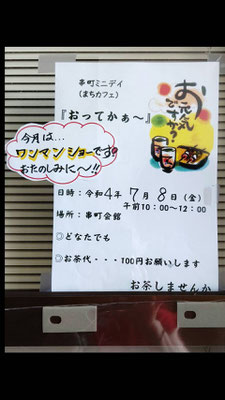 串町ミニデイ
(まちカフェ)
『おってかぁ～』
お元気
ですか？
今月は…
ワンマンショーです。
おたのしみに～!!
日時：令和4年 7月 8日(金)
午前10：00～12：00
場所：串町会館
◎どなたでも
◎お茶代・・・100円お願いします
お茶しませんか